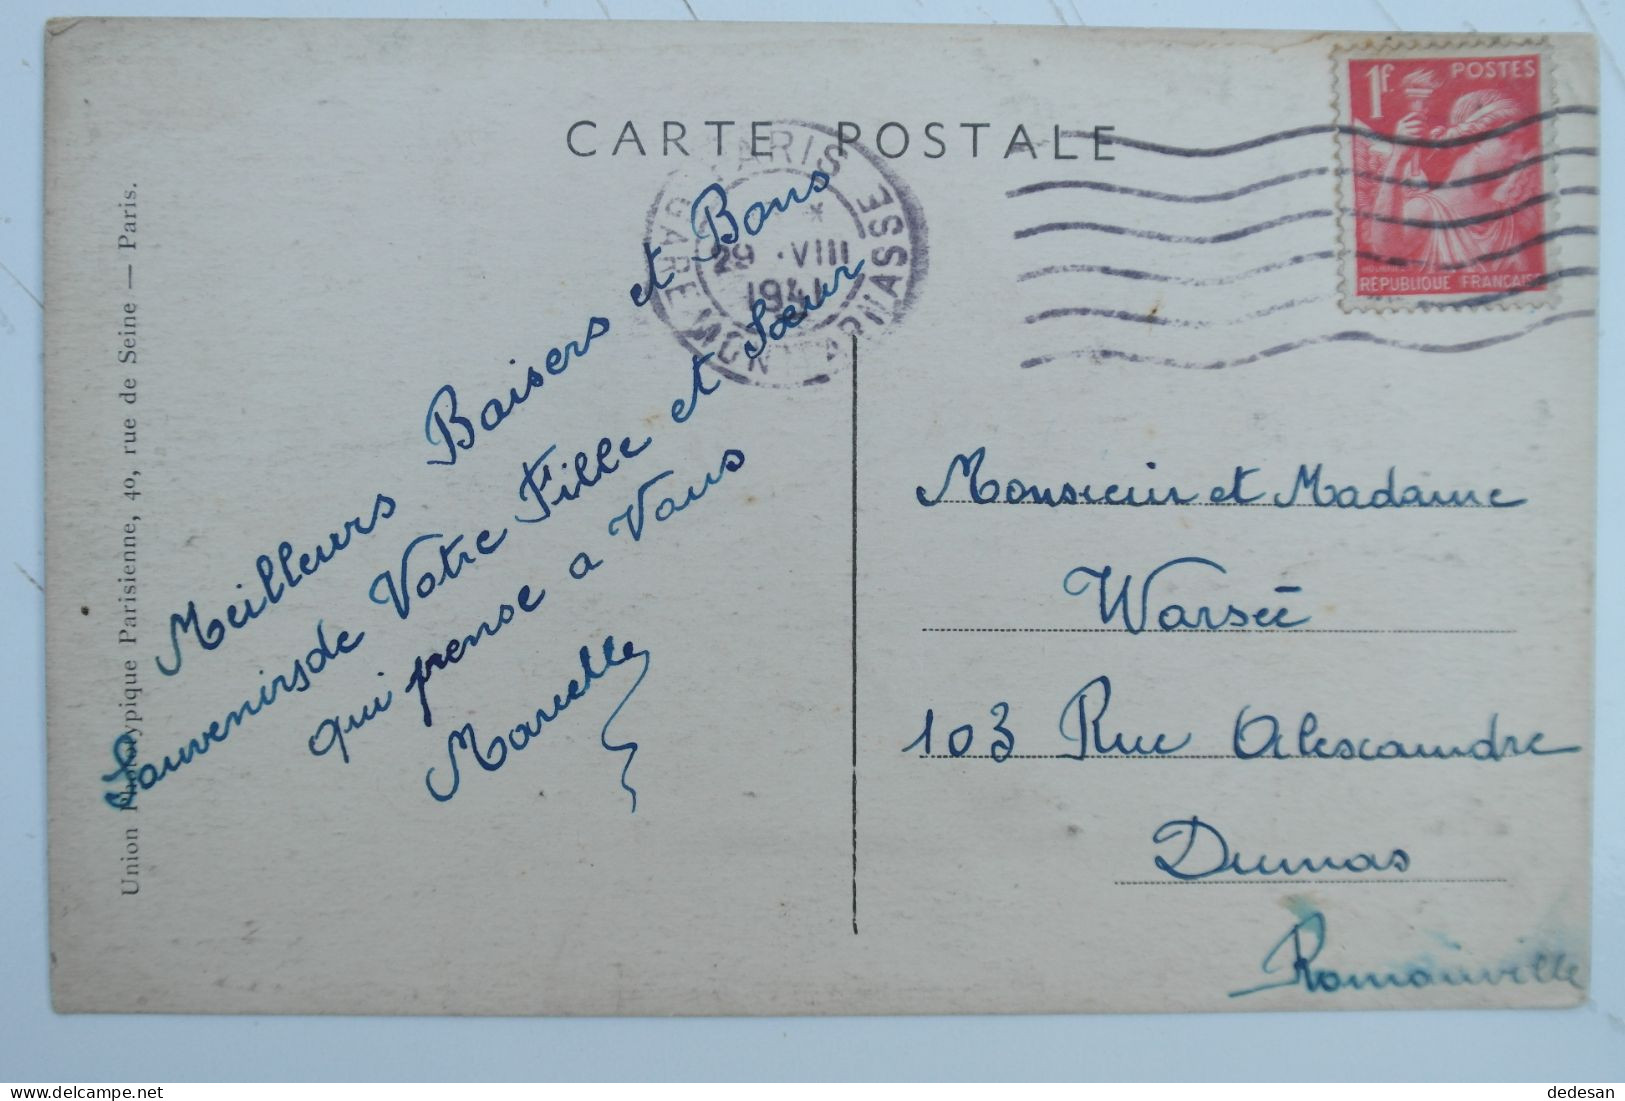 CARTE POSTALE
1f. POSTES
RÉPUBLIQUE FRANÇAISE
PARIS
GARE MONTPARNASSE
29 · VIII
1941
Union Phototypique Parisienne, 40, rue de Seine — Paris.
Meilleurs Baisers et Bons
Souvenirs de Votre Fille et Sœur
qui pense a Vous
Marcelle
Monsieur et Madame
Warsée
103 Rue Alescandre
Dumas
Romainville
dedesan